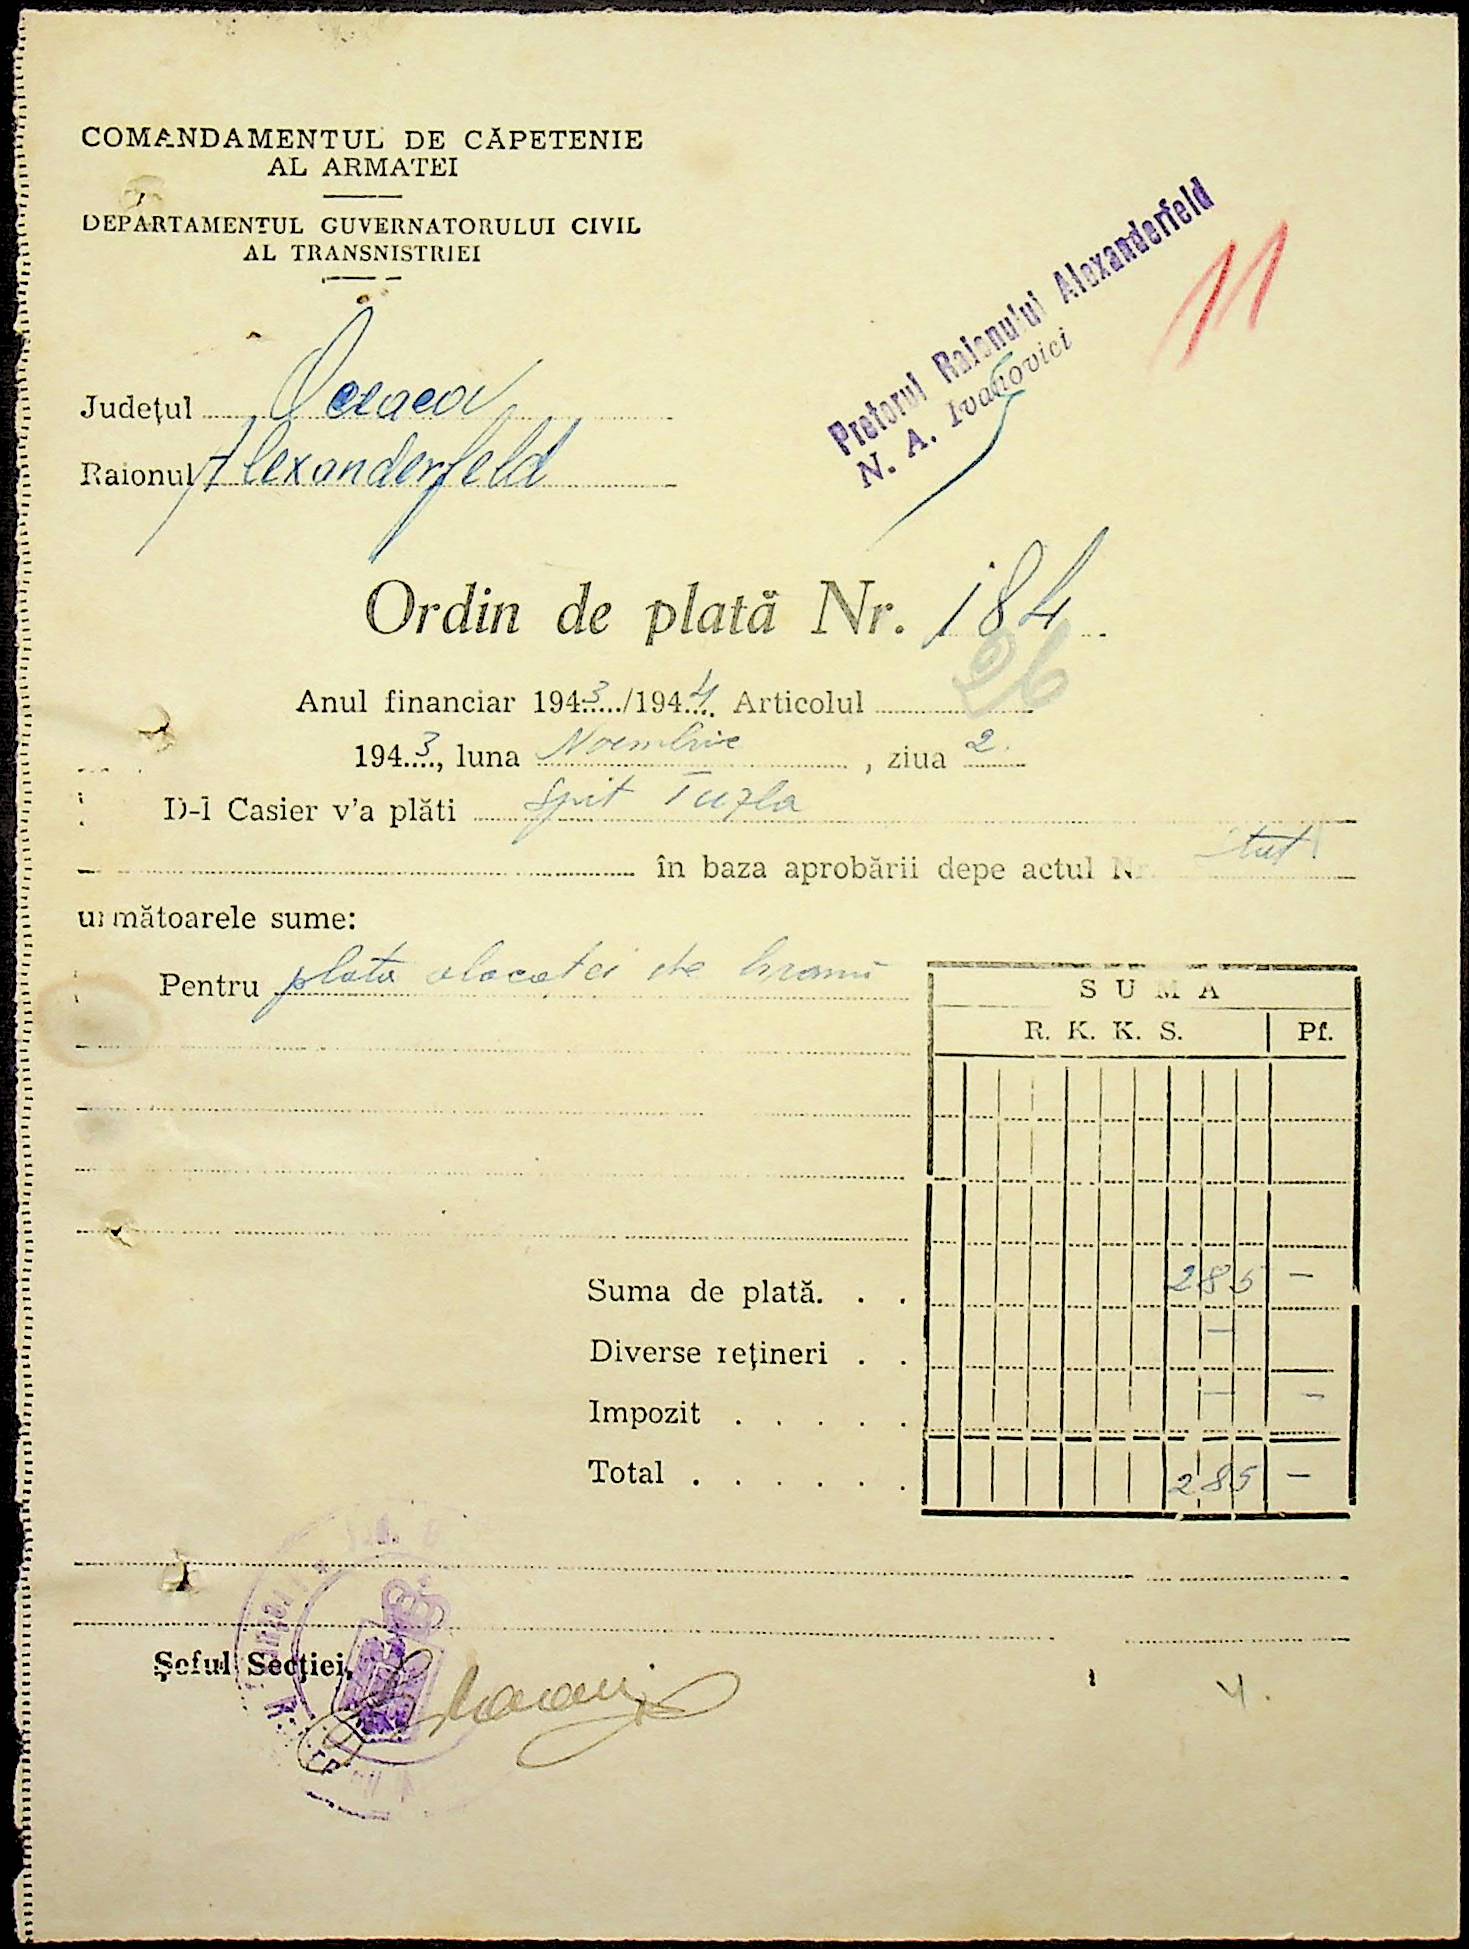 COMANDAMENTUL DE CĂPETENIE
AL ARMATEI
DEPARTAMENTUL GUVERNATORULUI CIVIL
AL TRANSNISTRIEI
Pretorul Raionului Alexanderfeld
N. A. Ivanovici
11
Județul Oceacov
Raionul Alexanderfeld
Ordin de plată Nr. 184
26
Anul financiar 1943/1944 Articolul
1943, luna Noembrie, ziua 2.
D-l Casier v'a plăti Spit Tuzla
în baza aprobării depe actul Nr. Stat
următoarele sume:
Pentru plata alocației de hrană
SUMA
R. K. K. S. Pf.
Suma de plată. . . 285 —
Diverse rețineri . . —
Impozit . . . . . — —
Total . . . . . . 285 —
Șeful Secției,